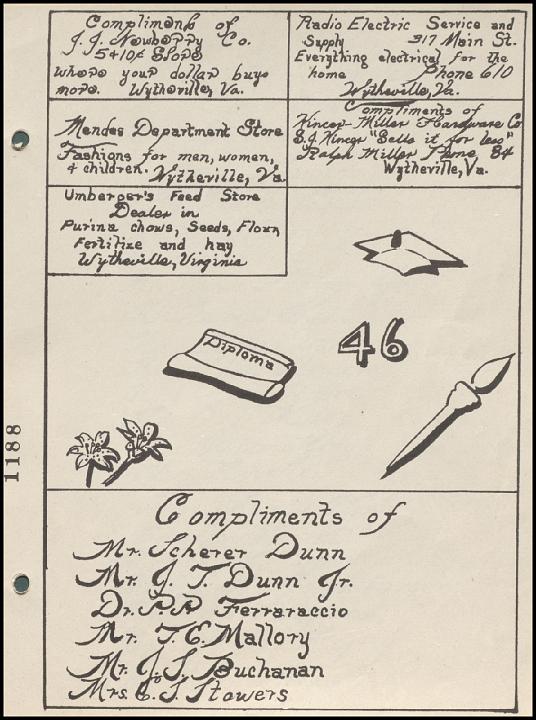 Compliments of
J. J. Newberry Co.
5¢10¢ Store
Where your dollar buys
more. Wytheville, Va.
Radio Electric Service and
Supply 317 Main St.
Everything electrical for the
home Phone 610
Wytheville, Va.
Mendes Department Store
Fashions for men, women,
& children. Wytheville, Va.
Compliments of
Kincer-Miller Hardware Co
S.J. Kincer "Sells it for less"
Ralph Miller Phone 84
Wytheville, Va.
Umberger's Feed Store
Dealer in
Purina chows, Seeds, Flour,
Fertilize and hay
Wytheville, Virginia
Diploma
46
1188
Compliments of
Mr. Scherer Dunn
Mr. J. T. Dunn Jr.
Dr. P. P. Ferraraccio
Mr. T. E. Mallory
Mr. J. S. Buchanan
Mrs. C. J. Stowers